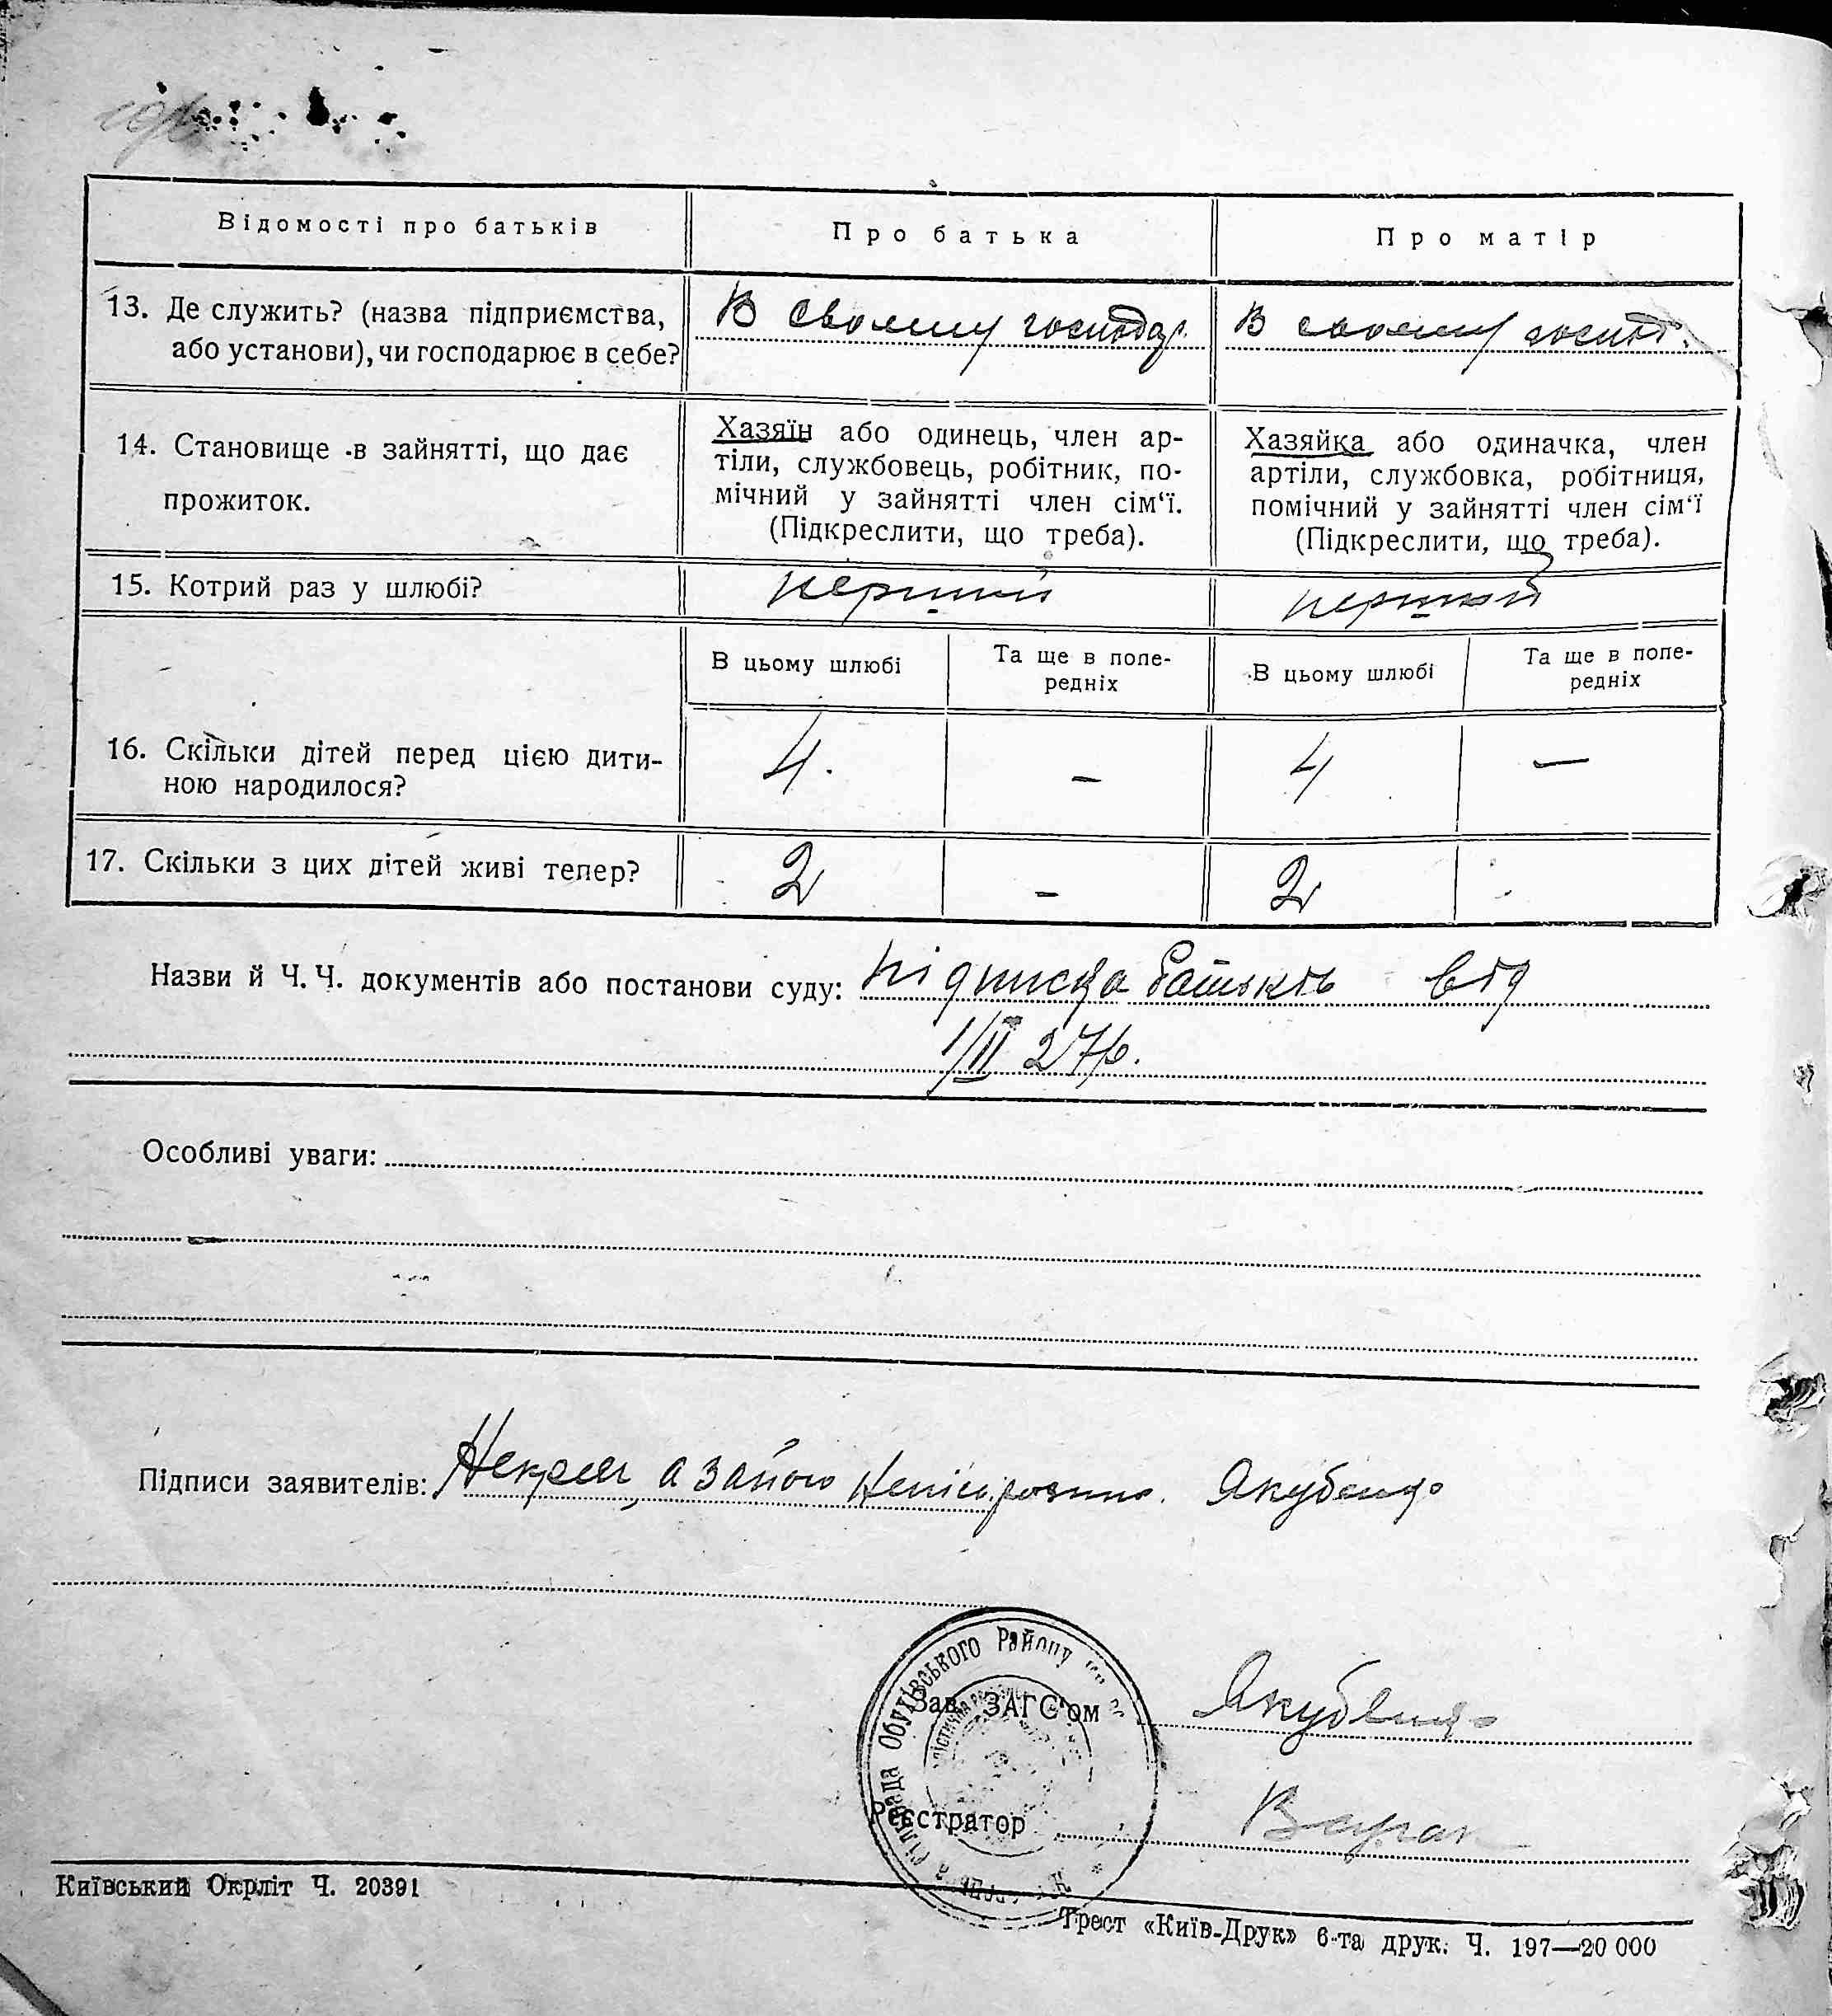 Відомості про батьків
Про батька
Про матір
13. Де служить? (назва підприємства,
або установи), чи господарює в себе?
В своєму господар.
В своєму господ.
14. Становище в зайнятті, що дає
прожиток.
Хазяїн або одинець, член ар-
тіли, службовець, робітник, по-
мічний у зайнятті член сім‘ї.
(Підкреслити, що треба).
Хазяйка або одиначка, член
артіли, службовка, робітниця,
помічний у зайнятті член сім‘ї
(Підкреслити, що треба).
15. Котрий раз у шлюбі?
перший
перший
В цьому шлюбі
Та ще в попе-
редніх
В цьому шлюбі
Та ще в попе-
редніх
16. Скільки дітей перед цією дити-
ною народилося?
4. – 4 –
17. Скільки з цих дітей живі тепер?
2 – 2 -
Назви й Ч. Ч. документів або постанови суду: підписка батьків від
1/II 27р.
Особливі уваги:
Підписи заявителів: а за його Якубенко
Обухівського Району
Зав. ЗАГС‘ом Якубенко
Реєстратор
Київський Окрліт Ч. 20391
Трест «Київ-Друк» 6-та друк. Ч. 197—20 000